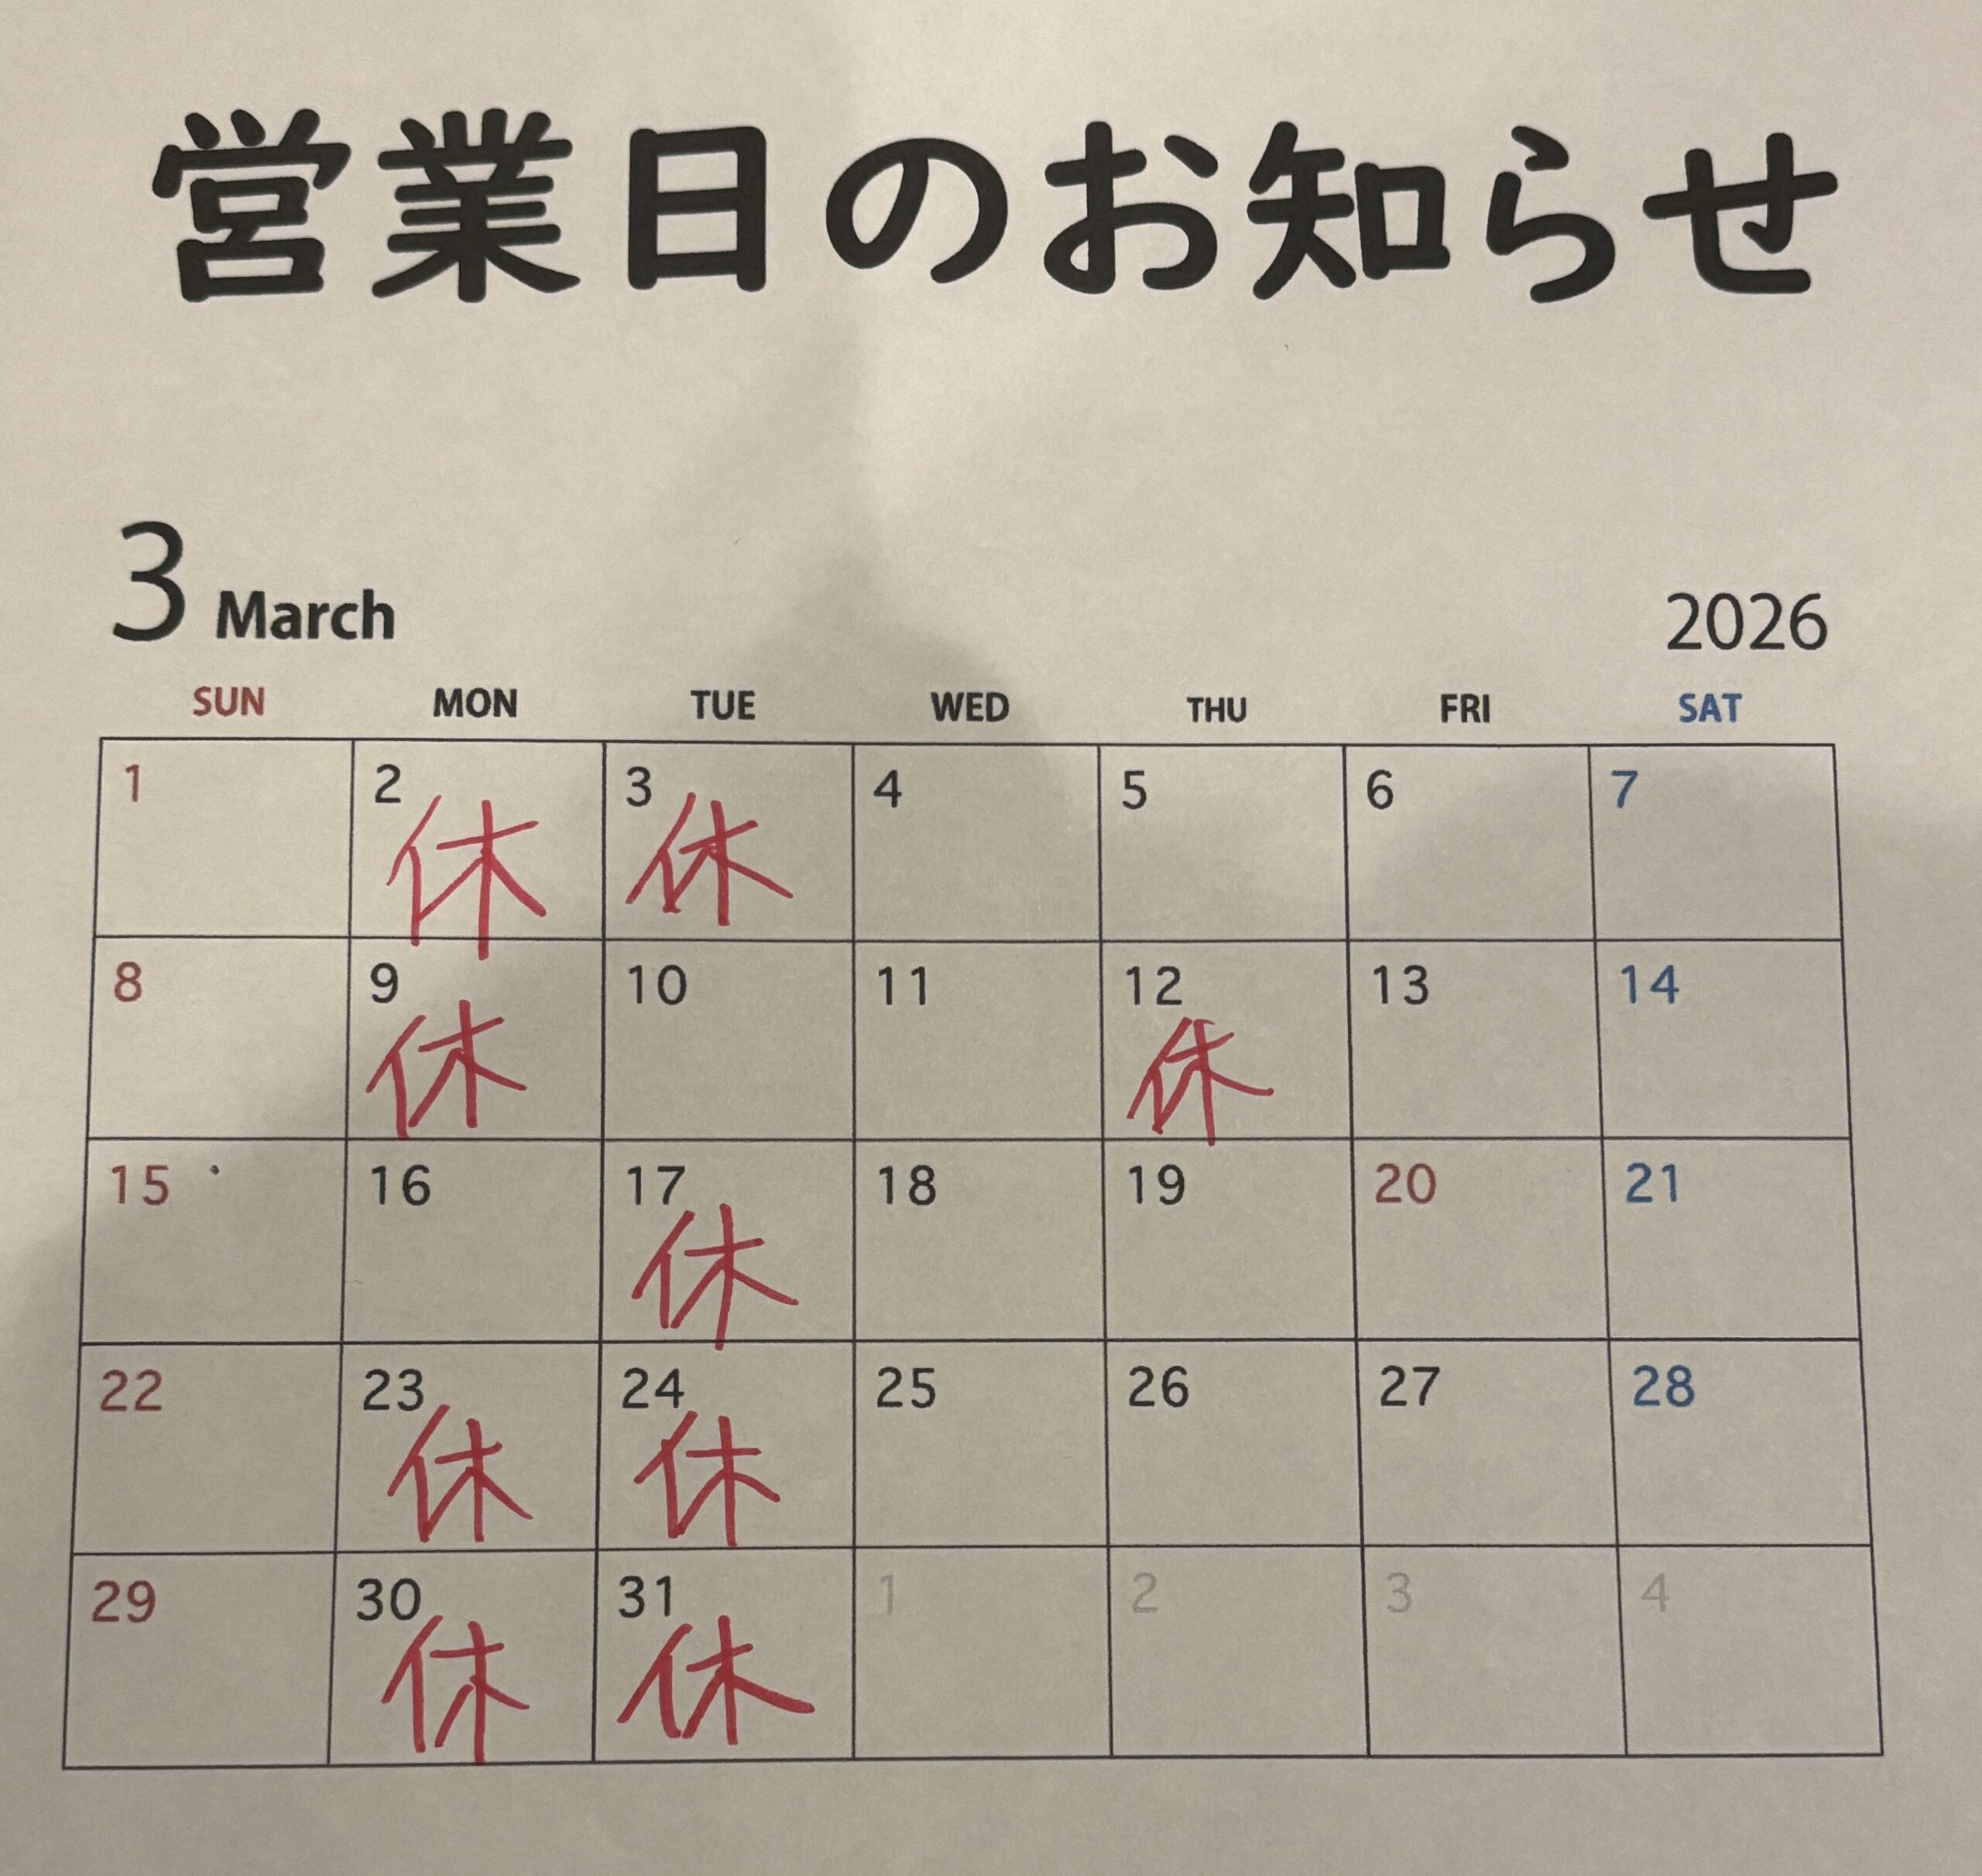 営業日のお知らせ
3 March 2026
SUN MON TUE WED THU FRI SAT
1 2 3 4 5 6 7
休 休
8 9 10 11 12 13 14
休 休
15 16 17 18 19 20 21
休
22 23 24 25 26 27 28
休 休
29 30 31 1 2 3 4
休 休